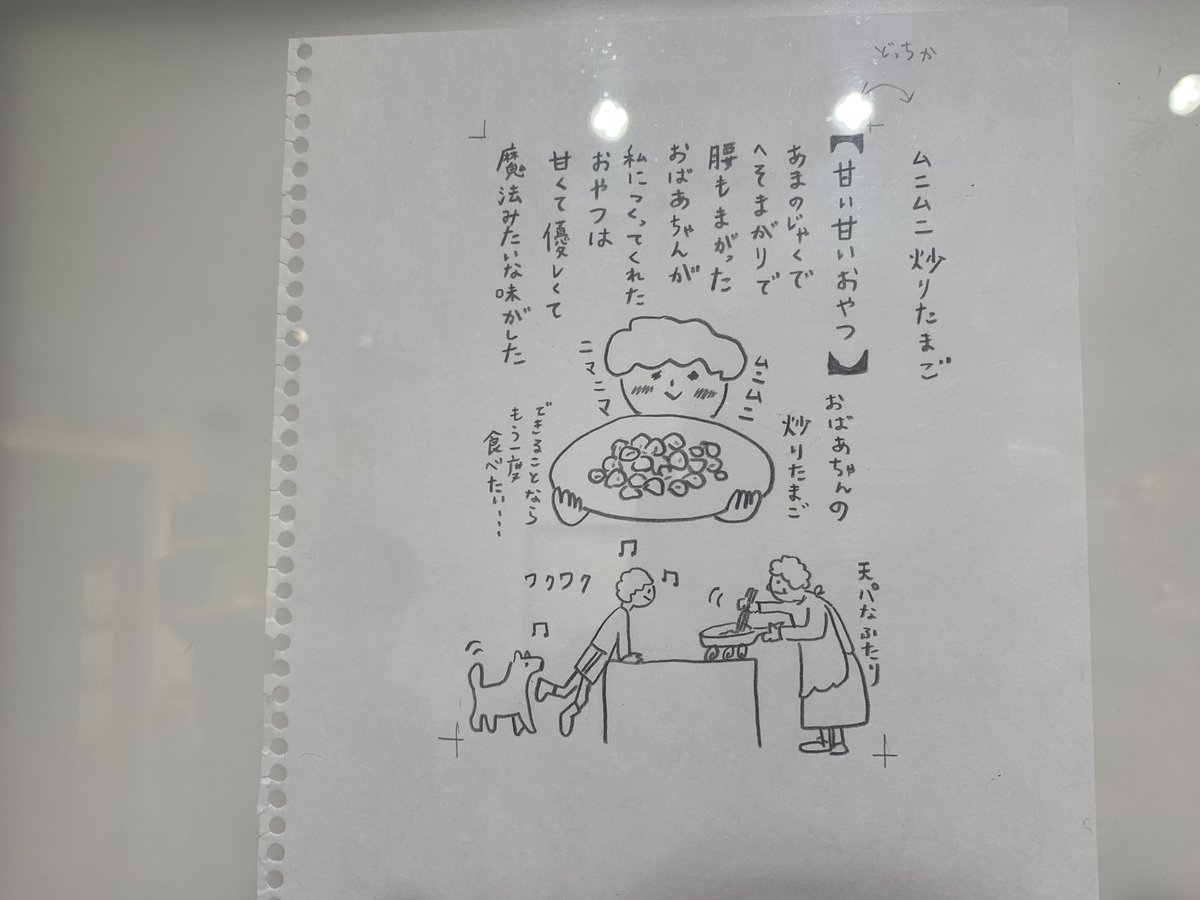 どっちか
ムニムニ炒りたまご
【甘い甘いおやつ】
あまのじゃくで
へそまがりで
腰もまがった
おばあちゃんが
私につくってくれた
おやつは
甘くて優しくて
魔法みたいな味がした
おばあちゃんの
ムニムニ
炒りたまご
ニマニマ
できることなら
もう一度
食べたい…
天パなふたり
ワクワク